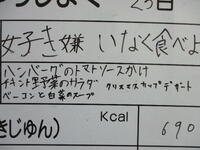 25日
好き嫌いなく食べよ
ハンバーグのトマトソースかけ
チキンと野菜のサラダ クリスマスカップデザート
ベーコンと白菜のスープ
きじゅん) Kcal 690